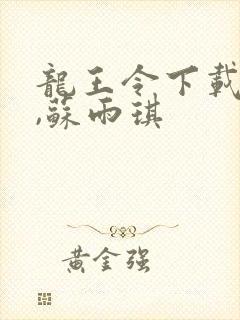 龍王令下載
,蘇雨琪
黄金强